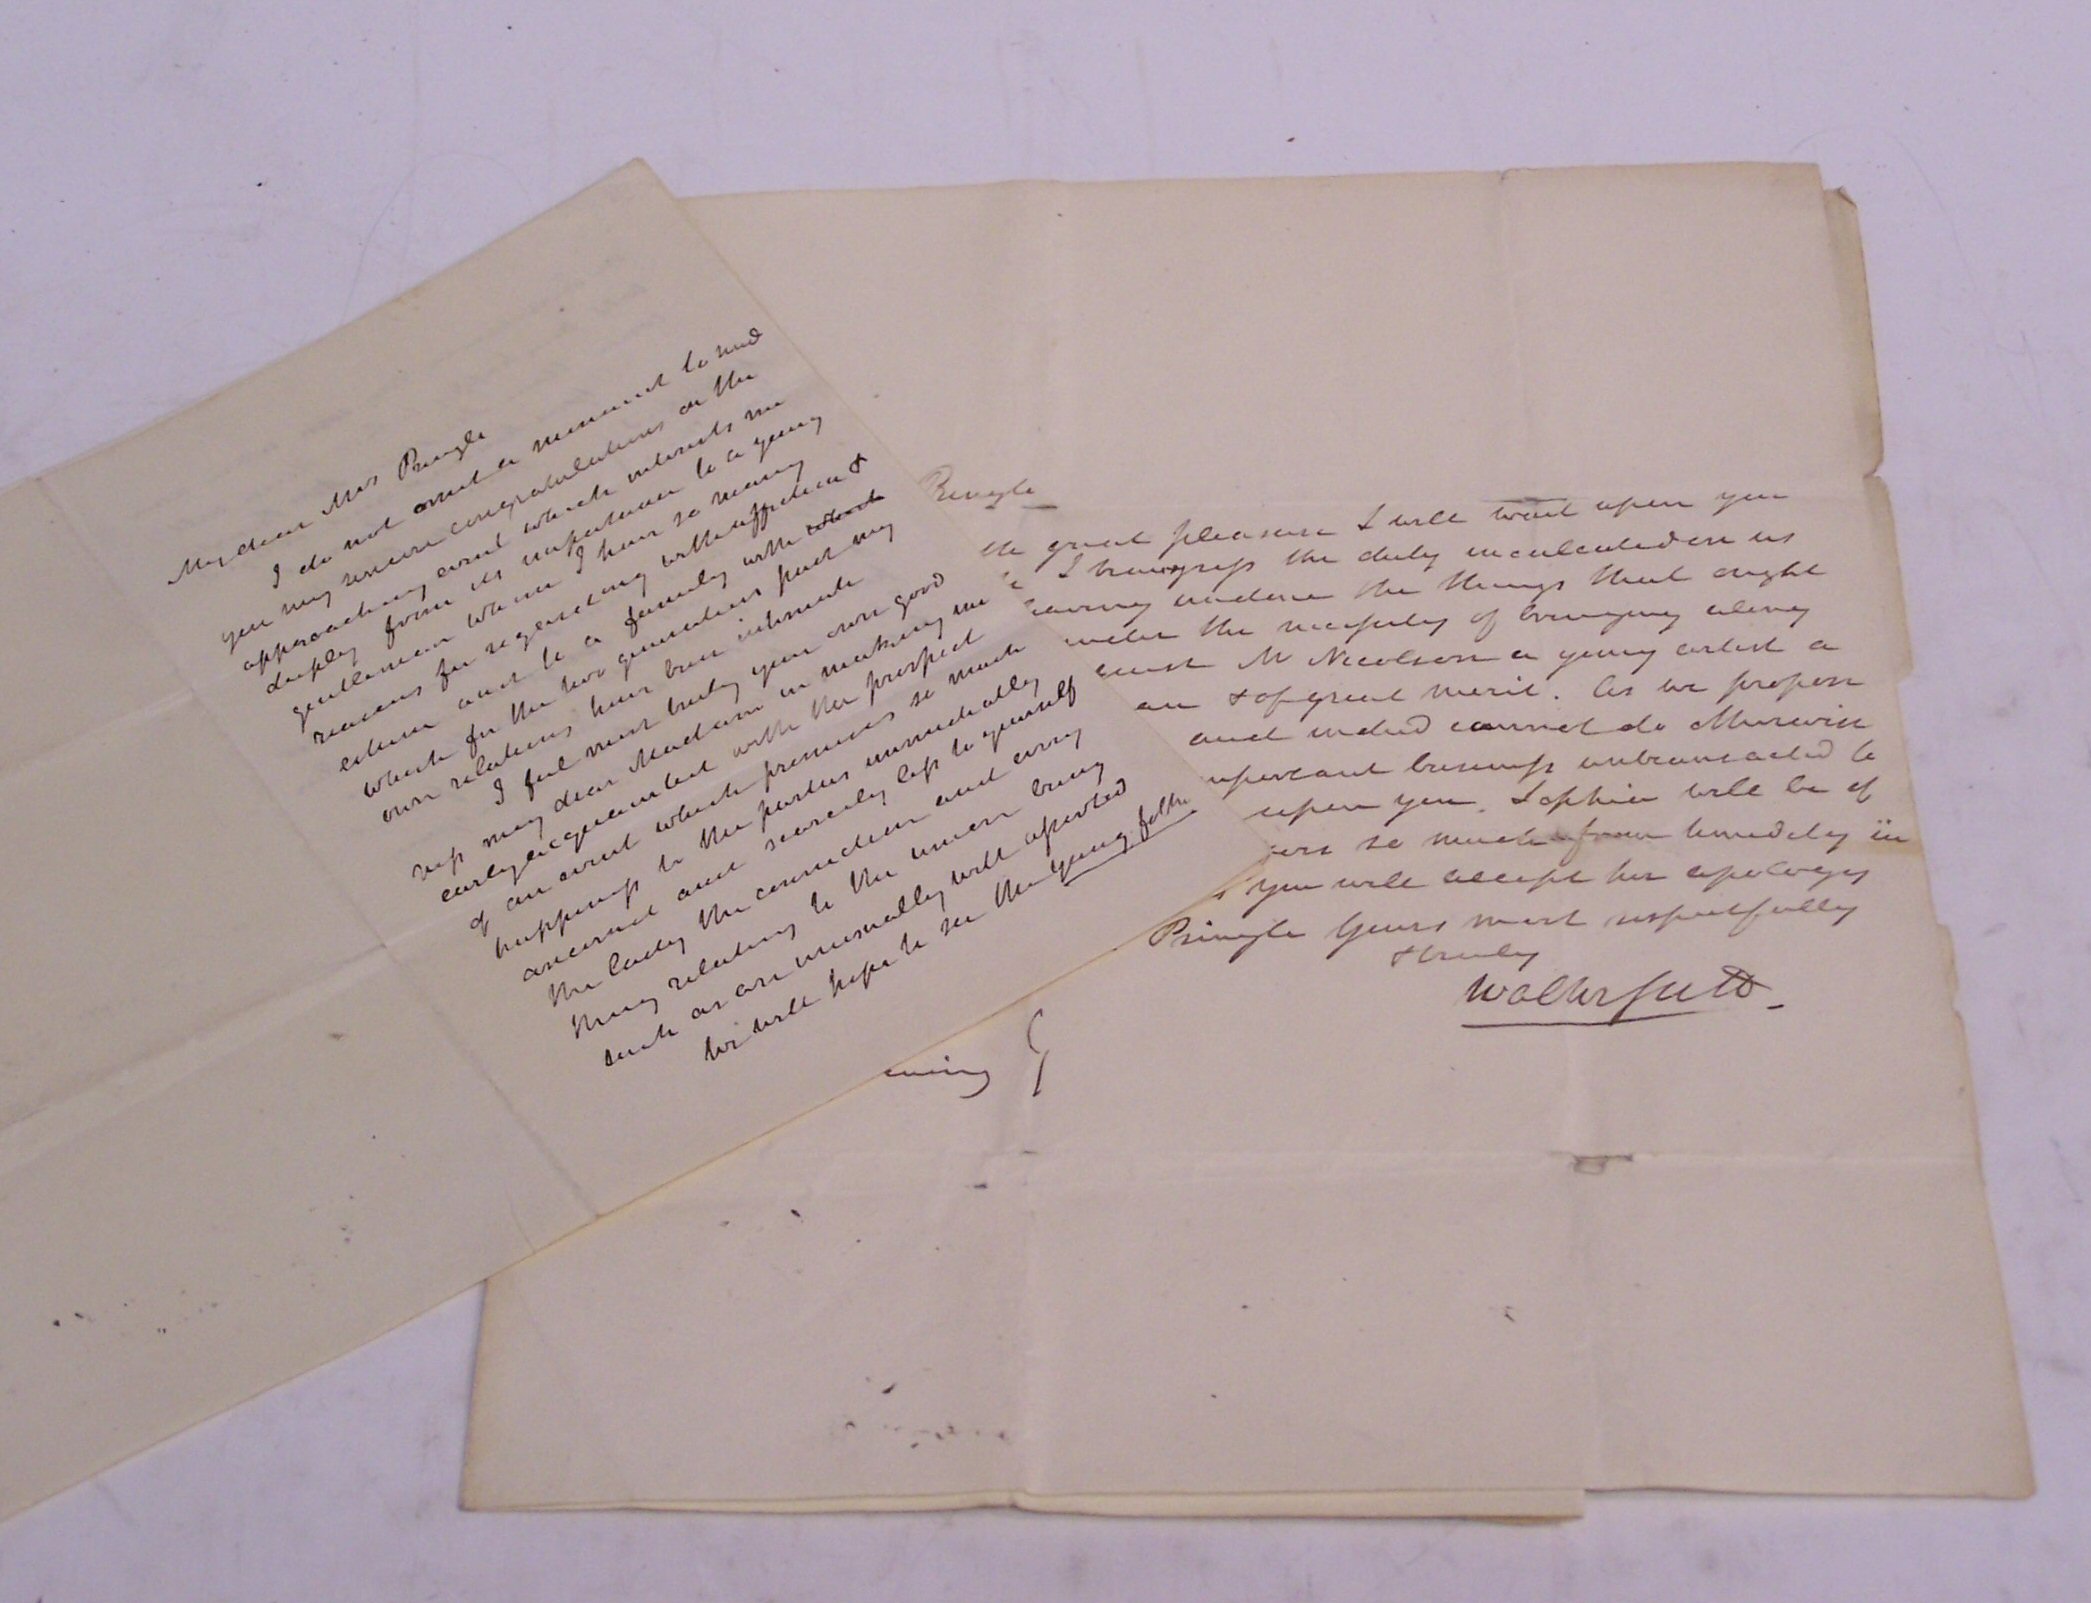 My dear Mrs Pringle
I do not omit a moment to send
you my sincere congratulations on the
approaching event which interests me
deeply from its importance to a young
gentleman whom I have so many
reasons for regarding with affection &
esteem and to a family with which
which for the two generations past my
own relations have been intimate
I feel most truly your own good
ness my dear Madam in making me
early acquainted with the prospect
of an event which promises so much
happiness to the parties immediately
concerned and scarcely less to yourself
the lady the connection and every
thing relating to the union being
such as are unusually well assorted
We will hope to see the young folks
Pringle
th great pleasure I will wait upon you
I transgress the duty inculcated on us
leaving undone the things that ought
under the necessity of bringing along
Mr Nicolson a young artist a
an & of great merit. As we propose
and indeed cannot do otherwise
important business untransacted to
upon you. Sophia will be of
so much from timidity in
you will accept her apology
Pringle Yours most respectfully
& truly
Walter Scott
evening